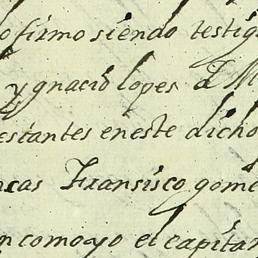 ofirmo siendo testig
y ygnacio lopes d M
estantes eneste dicho
cas Fransisco gome
n como yo el capitan